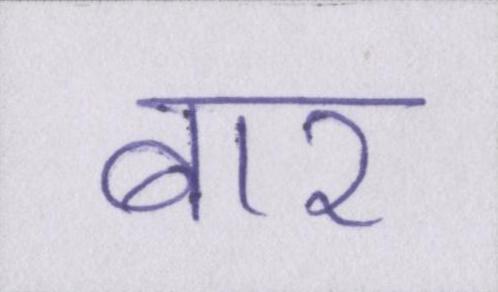 बार